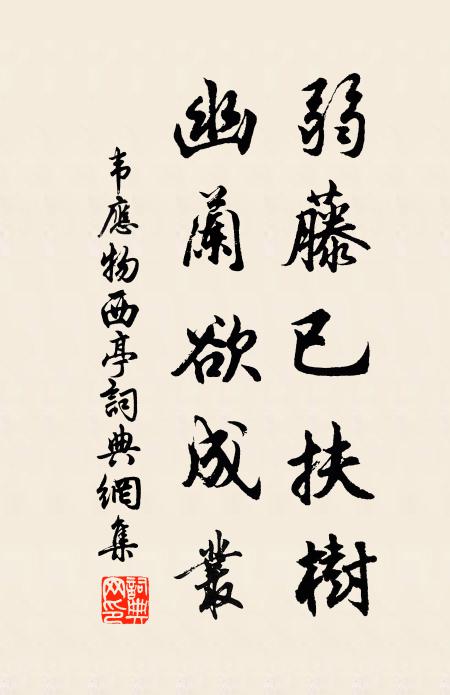 弱藤已扶樹
幽蘭欲成叢
韦應物西亭詞典網集
詞典网印